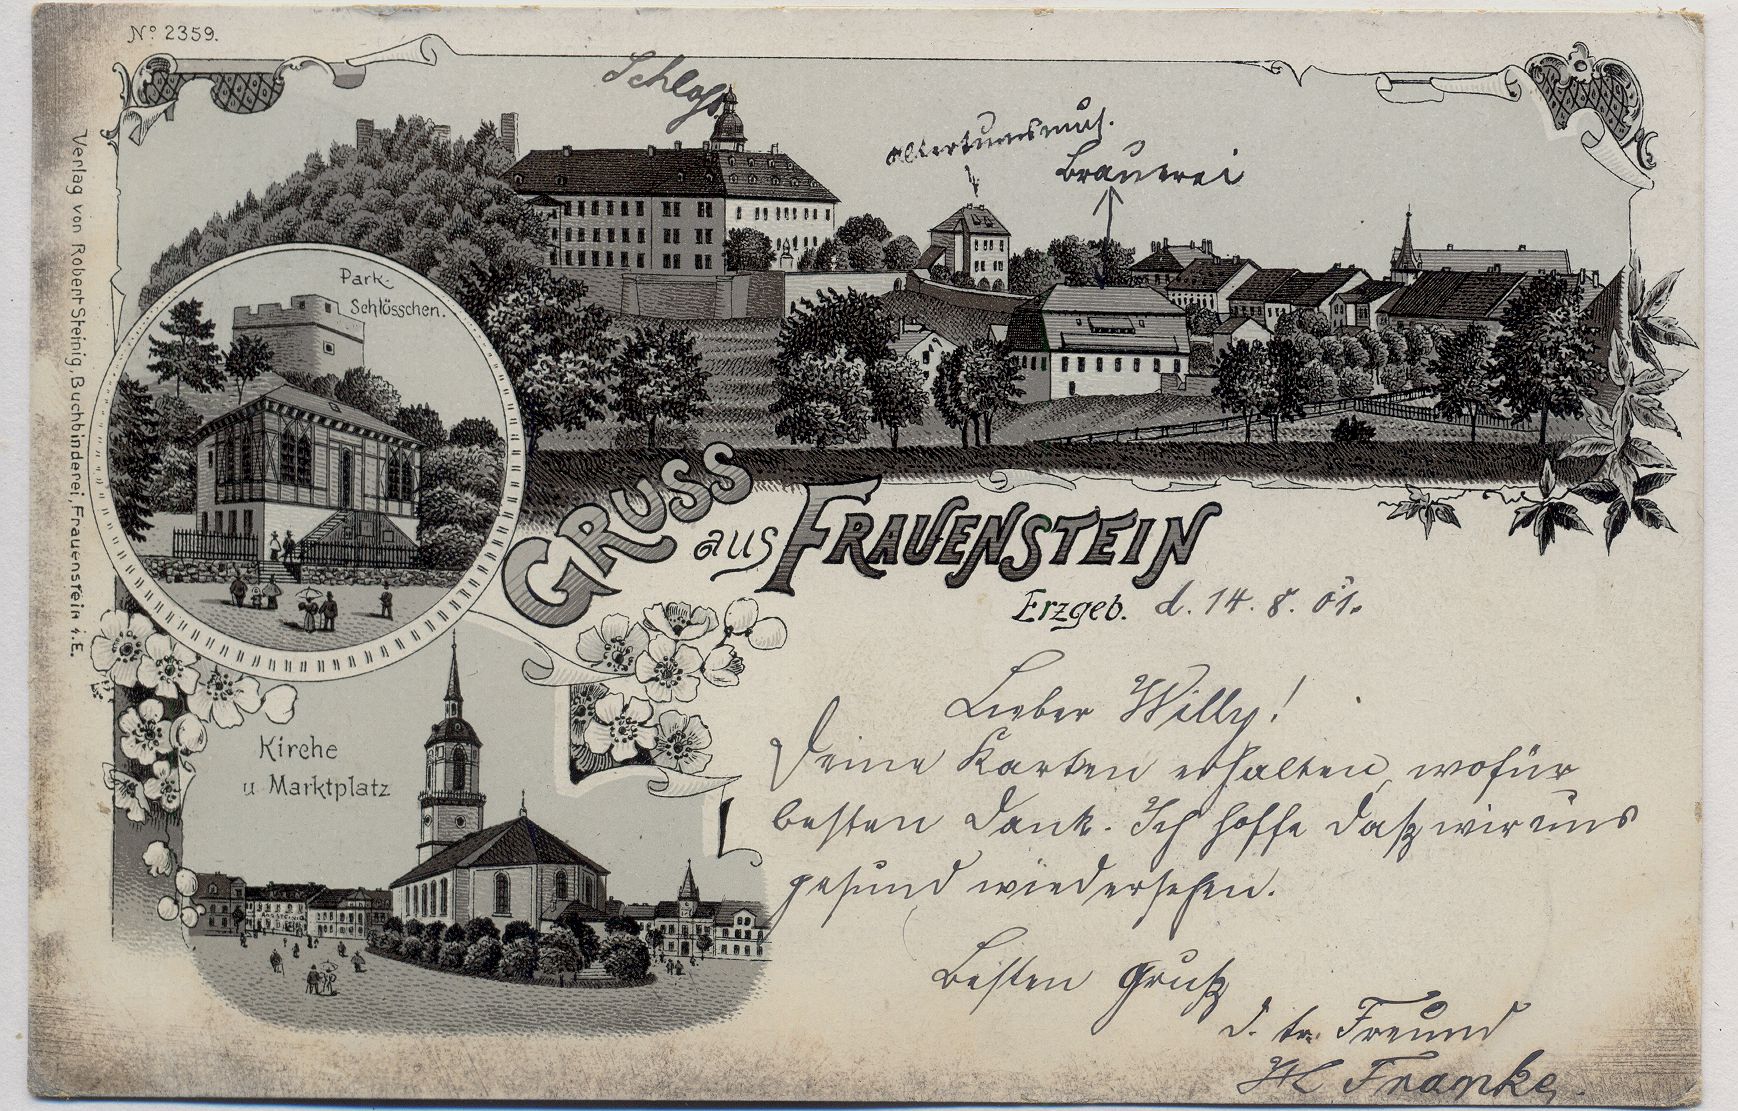 No 2359.
Schloß.
Altertumsmus.
Brauerei
Park-
Schlösschen.
Verlag von Robert Steinig, Buchbinderei, Frauenstein i.E.
GRUSS
aus FRAUENSTEIN
Erzgeb. d. 14. 8. 01.
Lieber Willy!
Deine Karten erhalten, wofür
besten Dank. Ich hoffe daß wir uns
gesund wiedersehen.
Kirche
u Marktplatz
Besten Gruß
d. tr. Freund
Franke.